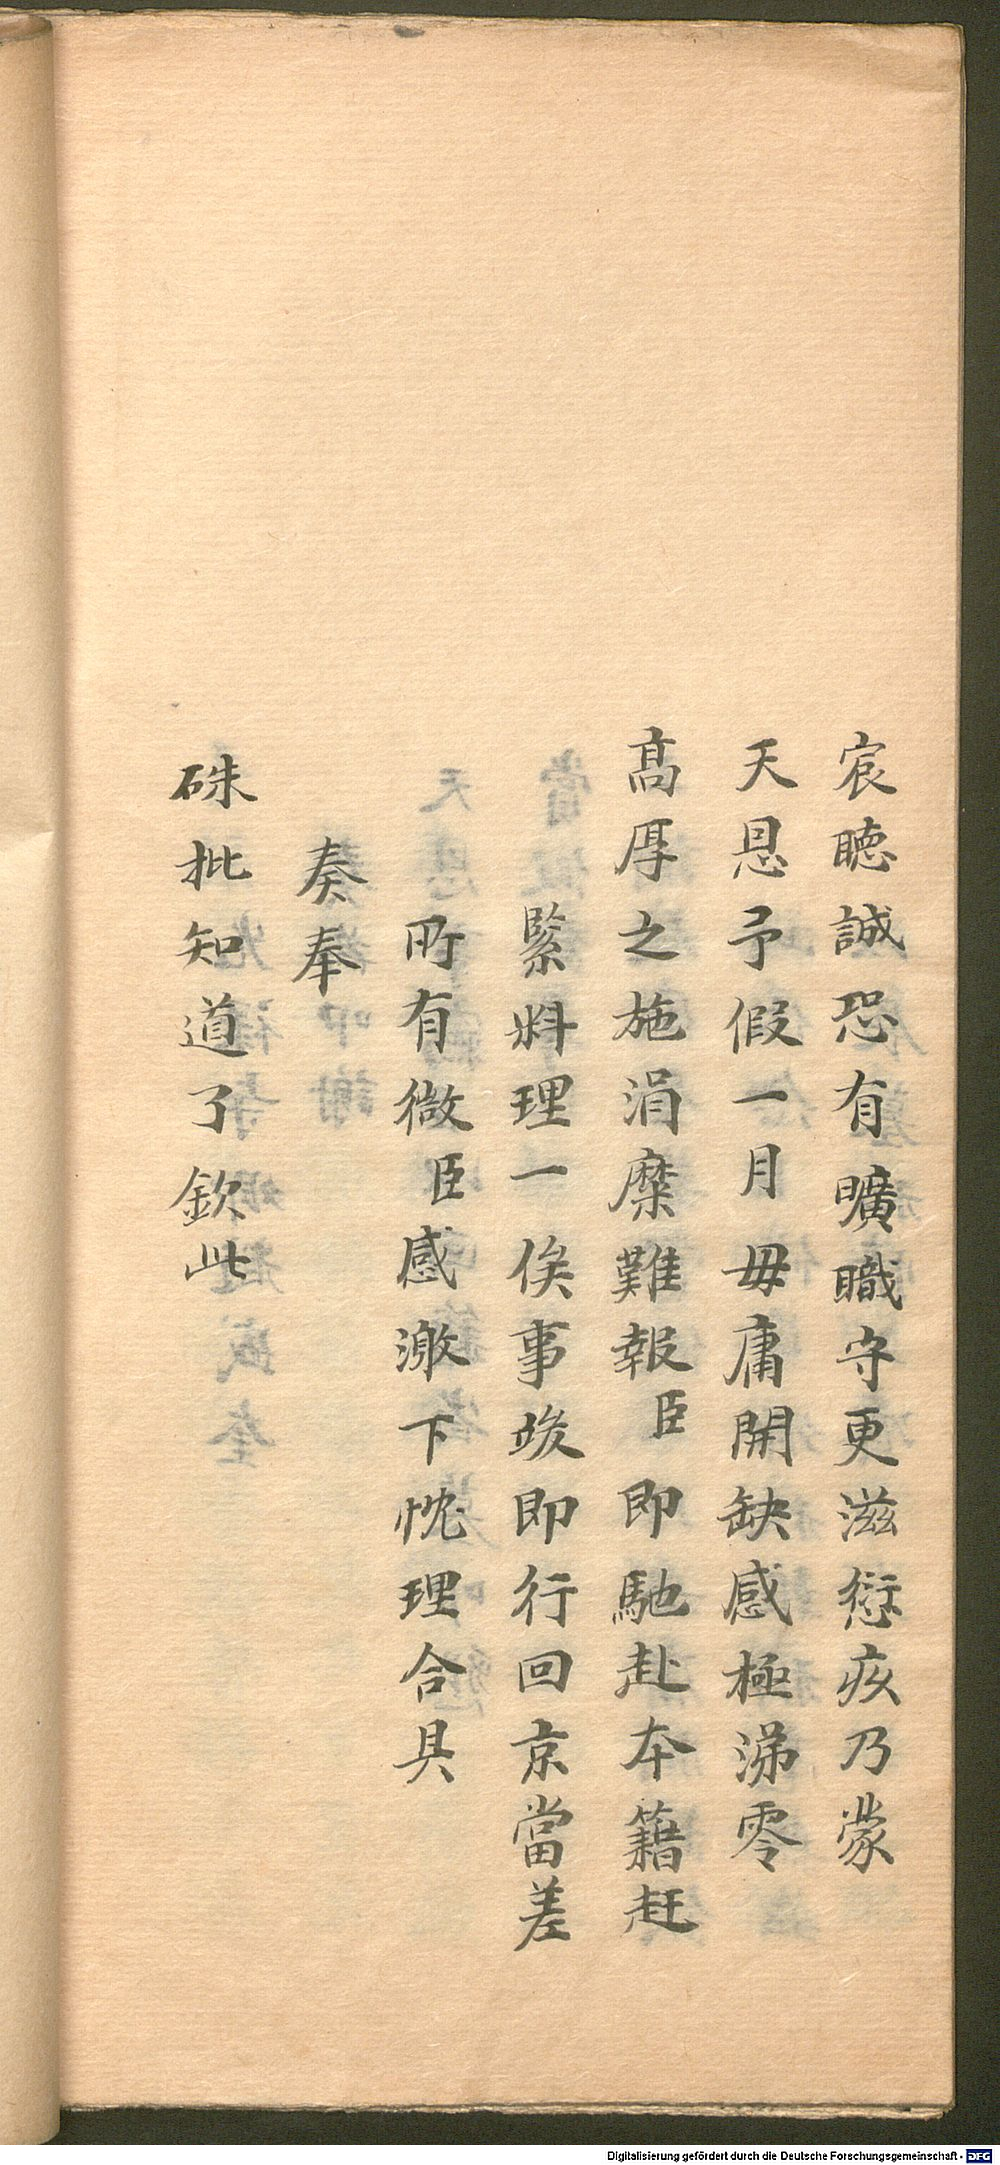 宸聴誠恐有曠職守更滋愆疚乃蒙
天恩予假一月毋庸開缺感極涕零
髙厚之施涓糜難報臣即馳赴本籍赶
緊料理一俟事竣即行回京當差
所有微臣感激下忱理合具
奏奉
硃批知道了欽此
Digitalisierung gefördert durch die Deutsche Forschungsgemeinschaft - DFG